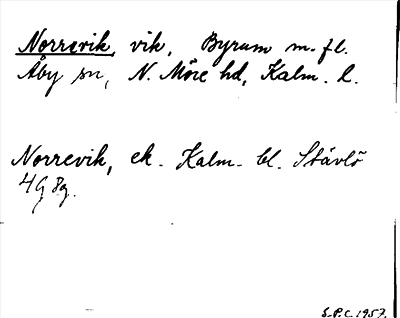 Norrevik, vik, Byrum m. fl.
Åby sn, N. Möre hd, Kalm. l.
Norrevik, ek. Kalm. bl. Stävlö
4G 8g.
S.P.C. 1957.